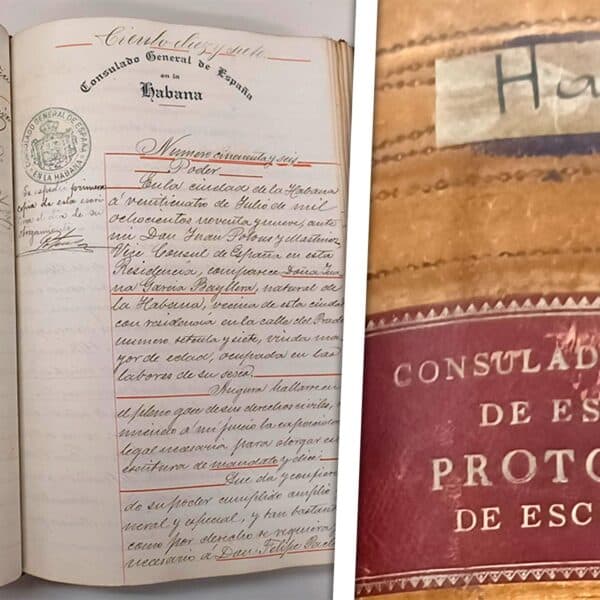 Ciento diez y siete
Consulado General de España
en la
Habana
CONSULADO GENERAL DE ESPAÑA
EN LA HABANA
Se expidió primera
copia de esta escri
tura el día de su
otorgamiento
Número cincuenta y seis
Poder
En la ciudad de la Habana
á veinticuatro de Julio de mil
ochocientos noventa y nueve, ante
mi Don Juan Potous y Martinez
Vice Consul de España en esta
Residencia, comparece Doña Jua
na García Bayllera, natural de
la Habana, vecina de esta ciudad
con residencia en la calle del Prado
numero setenta y siete, viuda ma
yor de edad, ocupada en las
labores de su sexo.
Asegura hallarse en
el pleno goce de sus derechos civiles, 
niendo á mi juicio la capacidad
legal necesaria para otorgar es
escritura de mandato y dice:
Que da y confiere
do su poder cumplido amplio
neral y especial, y tan bastante
como por derecho se requiera y
necesario á Don Felipe
Ha
CONSULAD
DE ES
PROTO
DE ESC